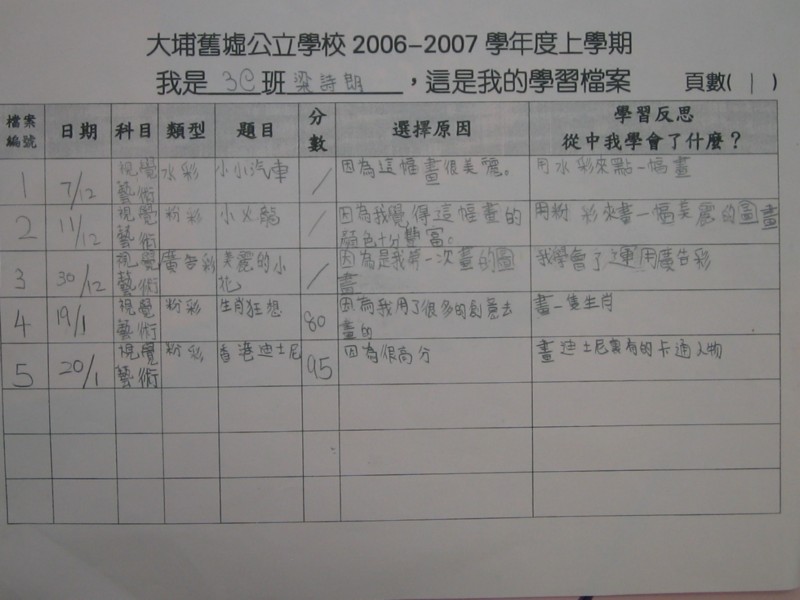 大埔舊墟公立學校 2006-2007 學年度上學期
我是 3C 班 梁詩朗 ，這是我的學習檔案 頁數( 1 )
檔案編號 日期 科目 類型 題目 分數 選擇原因 學習反思 從中我學會了什麼？
1 7/12 視覺藝術 水彩 小小汽車 / 因為這幅畫很美麗。 用水彩來點一幅畫
2 11/12 視覺藝術 粉彩 小火龍 / 因為我覺得這幅畫的顏色十分豐富。 用粉彩來畫一幅美麗的圖畫
3 30/12 視覺藝術 廣告彩 美麗的小花 / 因為是我第一次畫的圖畫 我學會了運用廣告彩
4 19/1 視覺藝術 粉彩 生肖狂想 80 因為我用了很多的創意去畫的 畫一隻生肖
5 20/1 視覺藝術 粉彩 香港迪士尼 95 因為很高分 畫迪士尼裏有的卡通人物